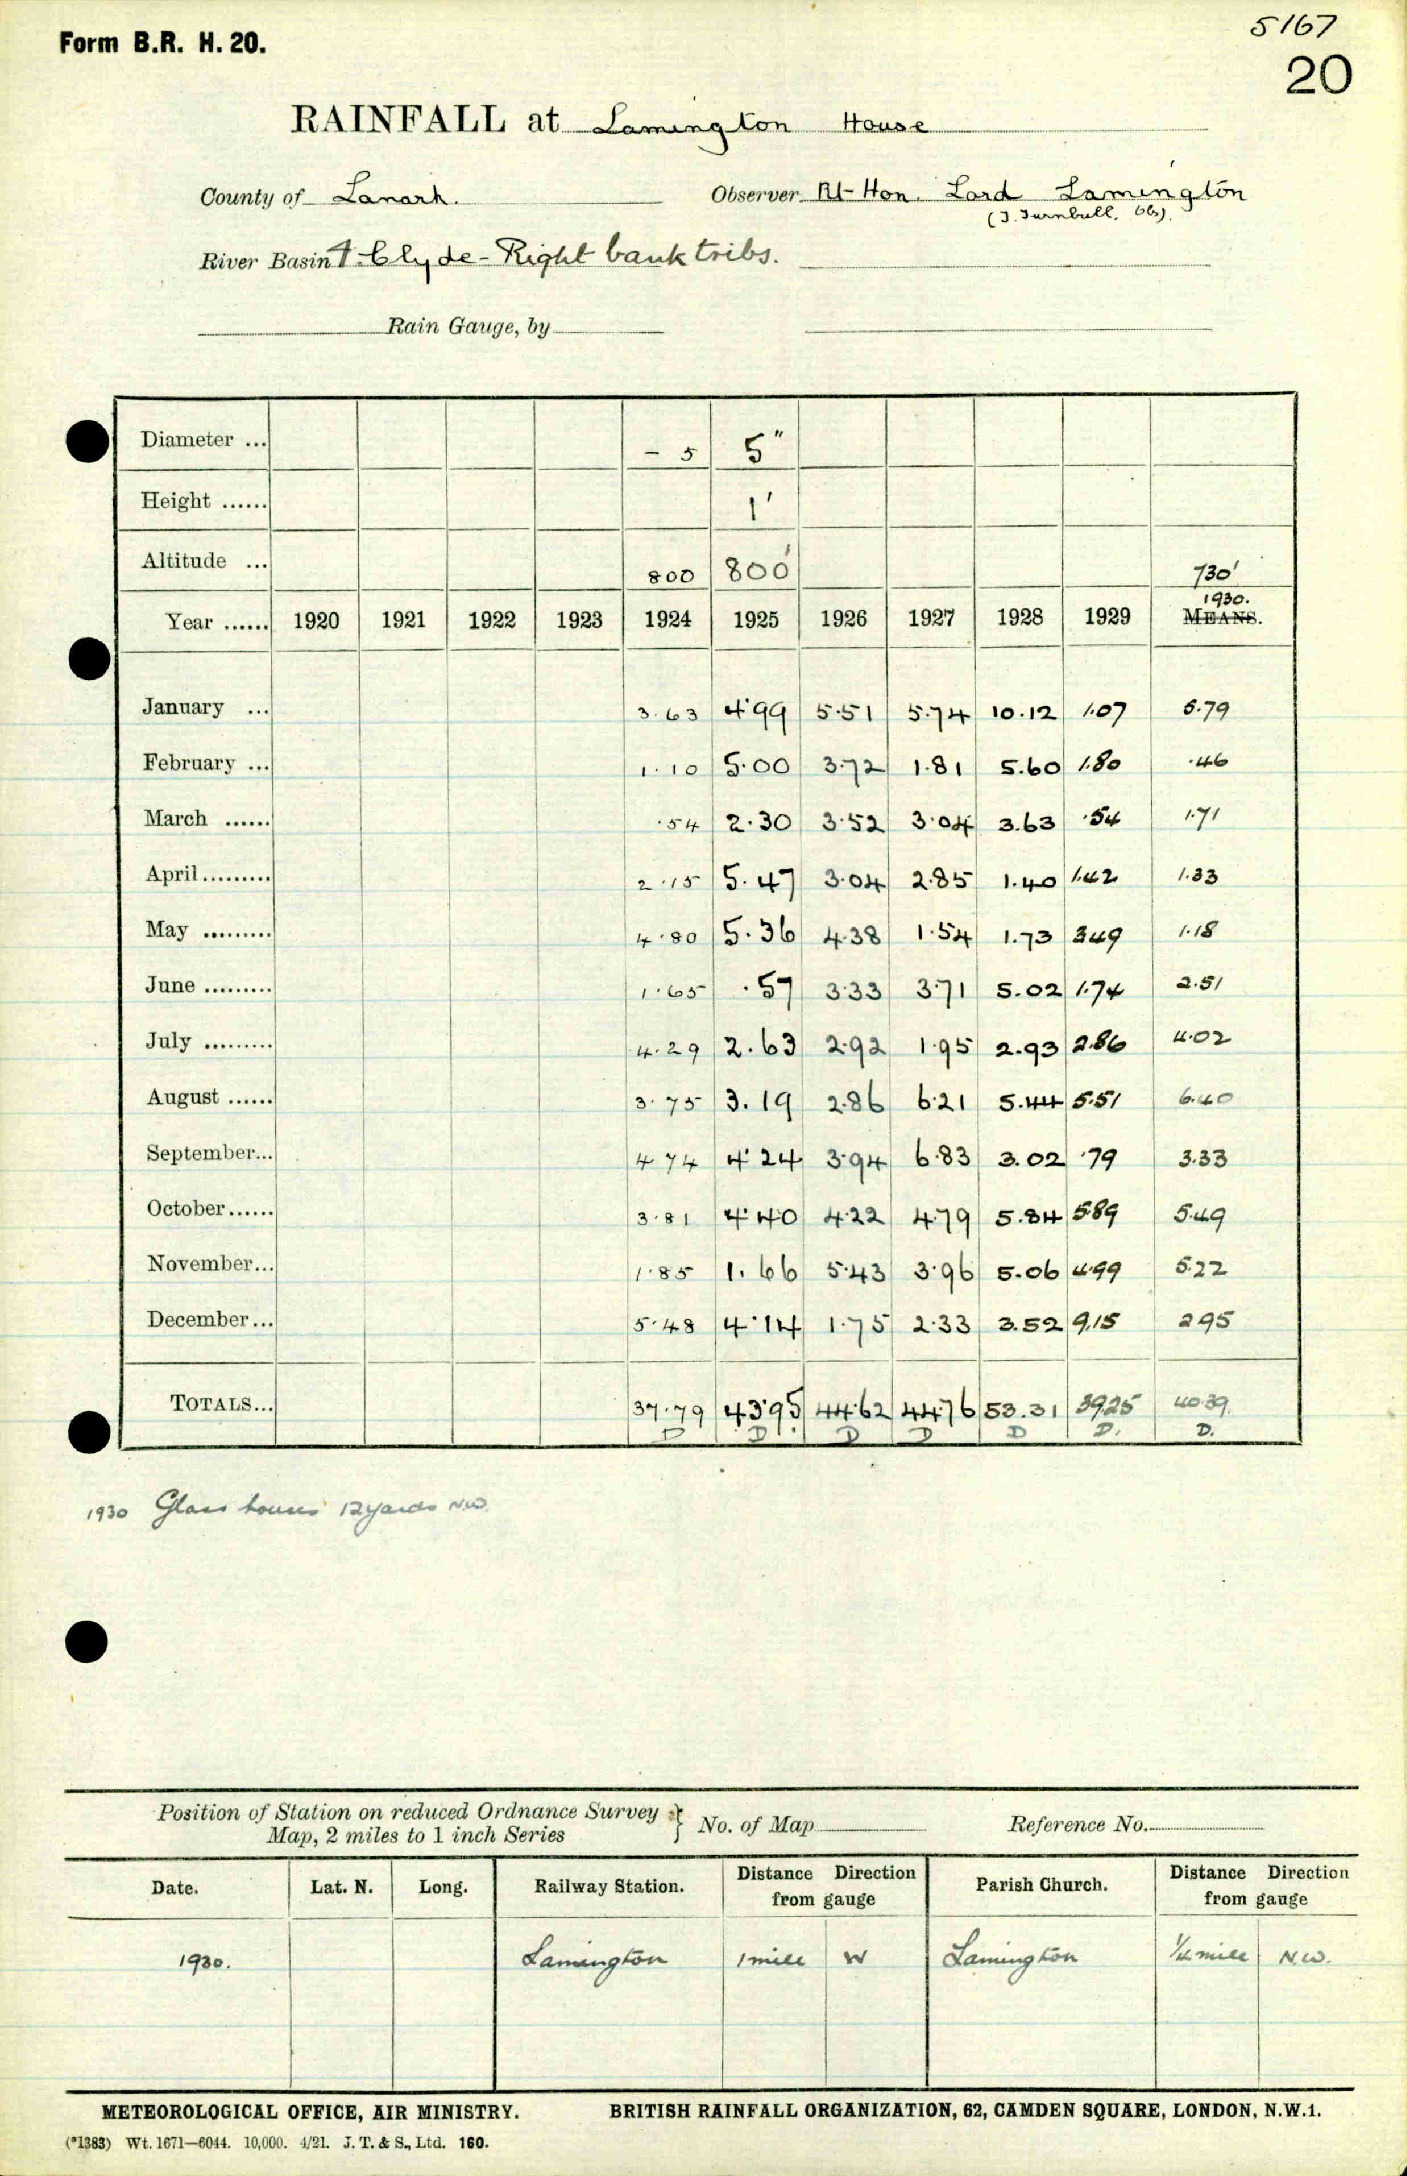 5167
Form B.R. H. 20.
20
RAINFALL at Lamington House
County of Lanark. Observer Rt Hon. Lord Lamington
(J. Turnbull, Obs).
River Basin 4. Clyde - Right bank tribs.
Rain Gauge, by
Diameter ... – 5 5"
Height ...... 1'
Altitude ... 800 800' 730'
1930.
Year ...... 1920 1921 1922 1923 1924 1925 1926 1927 1928 1929 MEANS.
January ... 3.63 4.99 5.51 5.74 10.12 1.07 5.79
February ... 1.10 5.00 3.72 1.81 5.60 1.80 .46
March ...... .54 2.30 3.52 3.04 3.63 .54 1.71
April ......... 2.15 5.47 3.04 2.85 1.40 1.42 1.33
May ......... 4.80 5.36 4.38 1.54 1.73 3.49 1.18
June ......... 1.65 .57 3.33 3.71 5.02 1.74 2.51
July ......... 4.29 2.63 2.92 1.95 2.93 2.86 4.02
August ...... 3.75 3.19 2.86 6.21 5.44 5.51 6.40
September... 4 74 4.24 3.94 6.83 3.02 .79 3.33
October...... 3.81 4.40 4.22 4.79 5.84 5.89 5.49
November... 1.85 1.66 5.43 3.96 5.06 4.99 5.22
December... 5.48 4.14 1.75 2.33 3.52 9.15 2.95
TOTALS... 37.79 43.95 44.62 44.76 53.31 39.25 40.39
D D D D D D. D.
1930 Glass houses 12 yards N.W.
Position of Station on reduced Ordnance Survey
Map, 2 miles to 1 inch Series } No. of Map Reference No.
Date. Lat. N. Long. Railway Station. Distance Direction from gauge Parish Church. Distance Direction from gauge
1930. Lamington 1 mile W Lamington 1/4 mile N.W.
METEOROLOGICAL OFFICE, AIR MINISTRY. BRITISH RAINFALL ORGANIZATION, 62, CAMDEN SQUARE, LONDON, N.W.1.
(*1383) Wt. 1671—6044. 10,000. 4/21. J. T. & S., Ltd. 160.